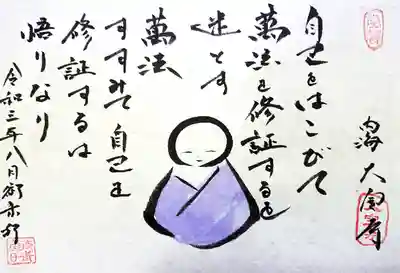 内海 大宝寺
自己をはこびて
萬法を修証するを
迷とす
萬法
すすみて自己を
修証するは
悟りなり
令和三年八月